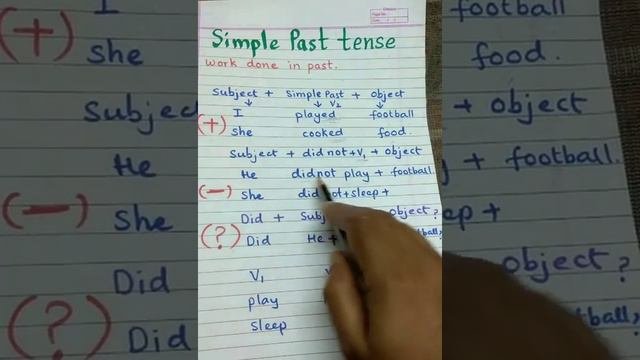 Simple Past tense
work done in past.
Subject + Simple Past + object
V2
I played football
(+)
She cooked food.
Subject + did not + V1 + object
He did not play + football.
(-) She did not + sleep +
Did + object?
(?) Did He +
V1
play
sleep
I football
(+)
She food.
Subject + object
He + football.
(-) She
Did object?
(?) Did